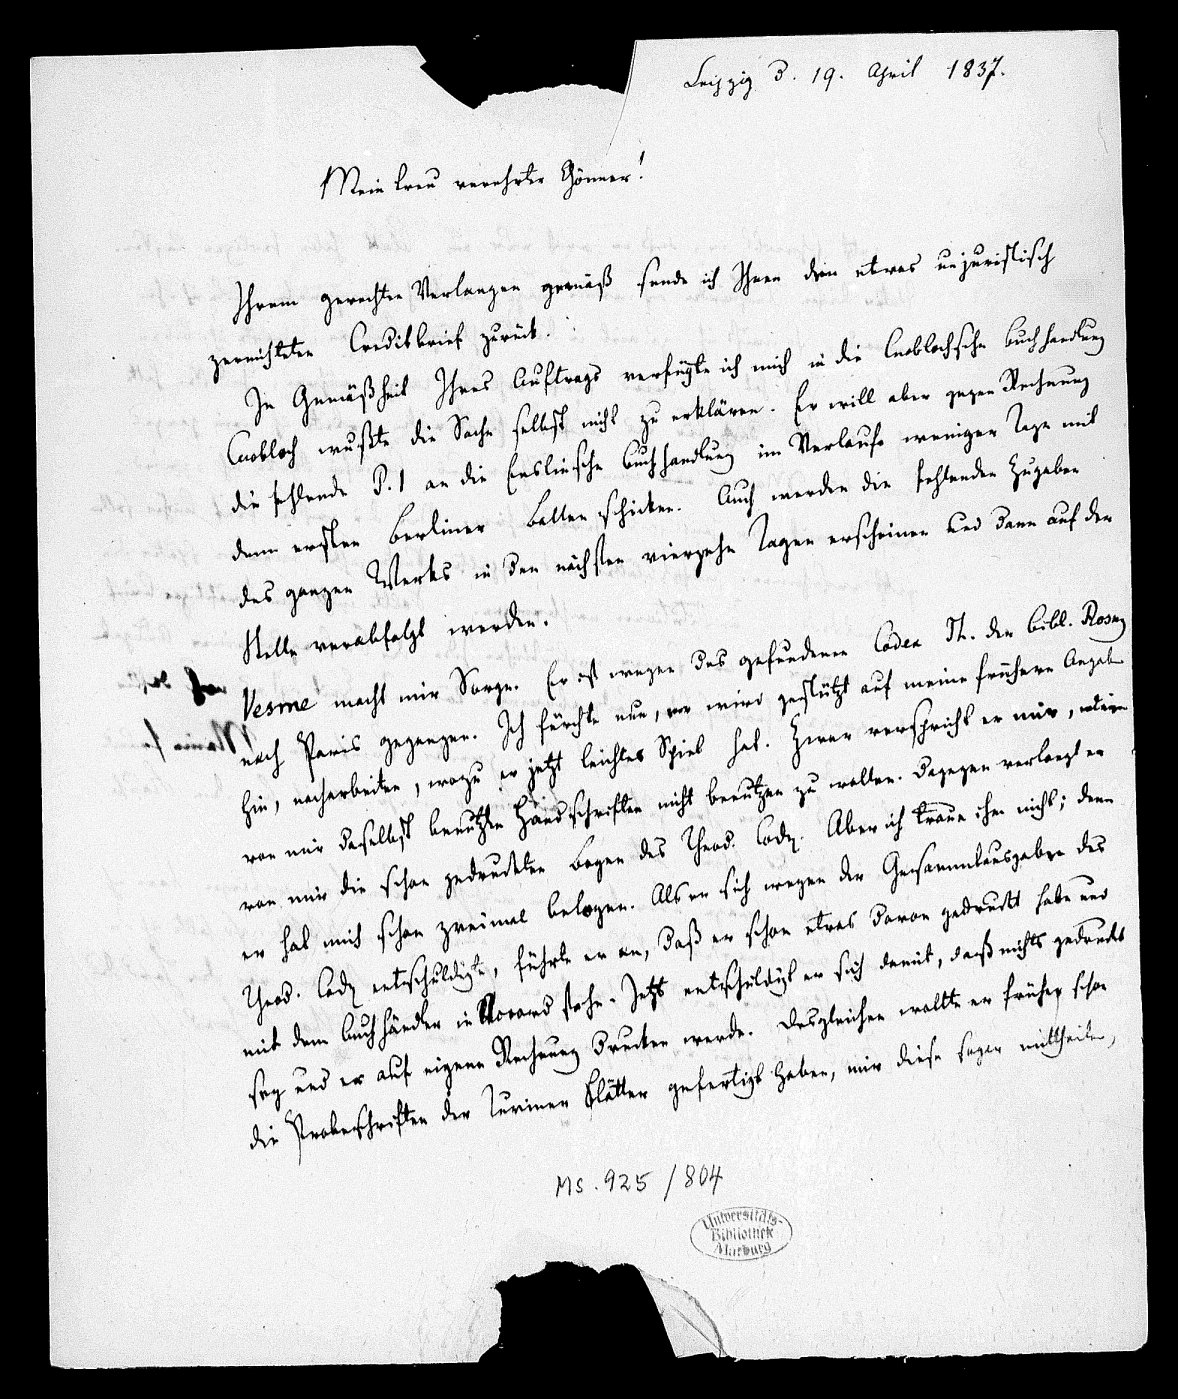 Leipzig d. 19. April 1837.
Mein treu verehrter Gönner!
Ihrem gerechten Verlangen gemäß sende ich Ihnen den etwas unjuristisch
zernichteten Creditbrief zurück.
In Gemäßheit Ihres Auftrags verfügte ich mich in die Cnoblochsche Buchhandlung
Cnobloch wußte die Sache selbst nicht zu erklären. Er will aber gegen Rechnung
die fehlende P. 1 an die Enslinsche Buchhandlung im Verlaufe weniger Tage mit
dem ersten Berliner Ballen schicken. Auch werden die fehlenden Zugaben
des ganzen Werks in den nächsten vierzehn Tagen erscheinen und dann auf der
Stelle verabfolgt werden.
Vesme macht mir Sorge. Er ist wegen des gefundenen Codex Th. der Bibl. Rosny
nach Paris gegangen. Ich fürchte nun, er wird gestützt auf meine frühere Angabe
hin, nacharbeiten, wozu er jetzt leichtes Spiel hat. Zwar verspricht er mir, die
von mir daselbst benutzten Handschriften nicht benutzen zu wollen. Dagegen verlangt er
von mir die schon gedruckten Bogen des Theod. Cod. Aber ich traue ihm nicht; denn
er hat mich schon zweimal belogen. Als er sich wegen der Gesammtausgabe des
Theod. Cod. entschuldigte, führte er an, daß er schon etwas davon gedruckt habe und
mit dem Buchhändler in Accord stehe. Jetzt entschuldigt er sich damit, daß nichts gedruckt
sey und er auf eigene Rechnung drucken werde. Desgleichen wollte er früher schon
die Probeschriften der Turiner Blätter gefertigt haben, mir diese sogar mittheilen,
Ms. 925 / 804
Universitäts-
Bibliothek
Marburg